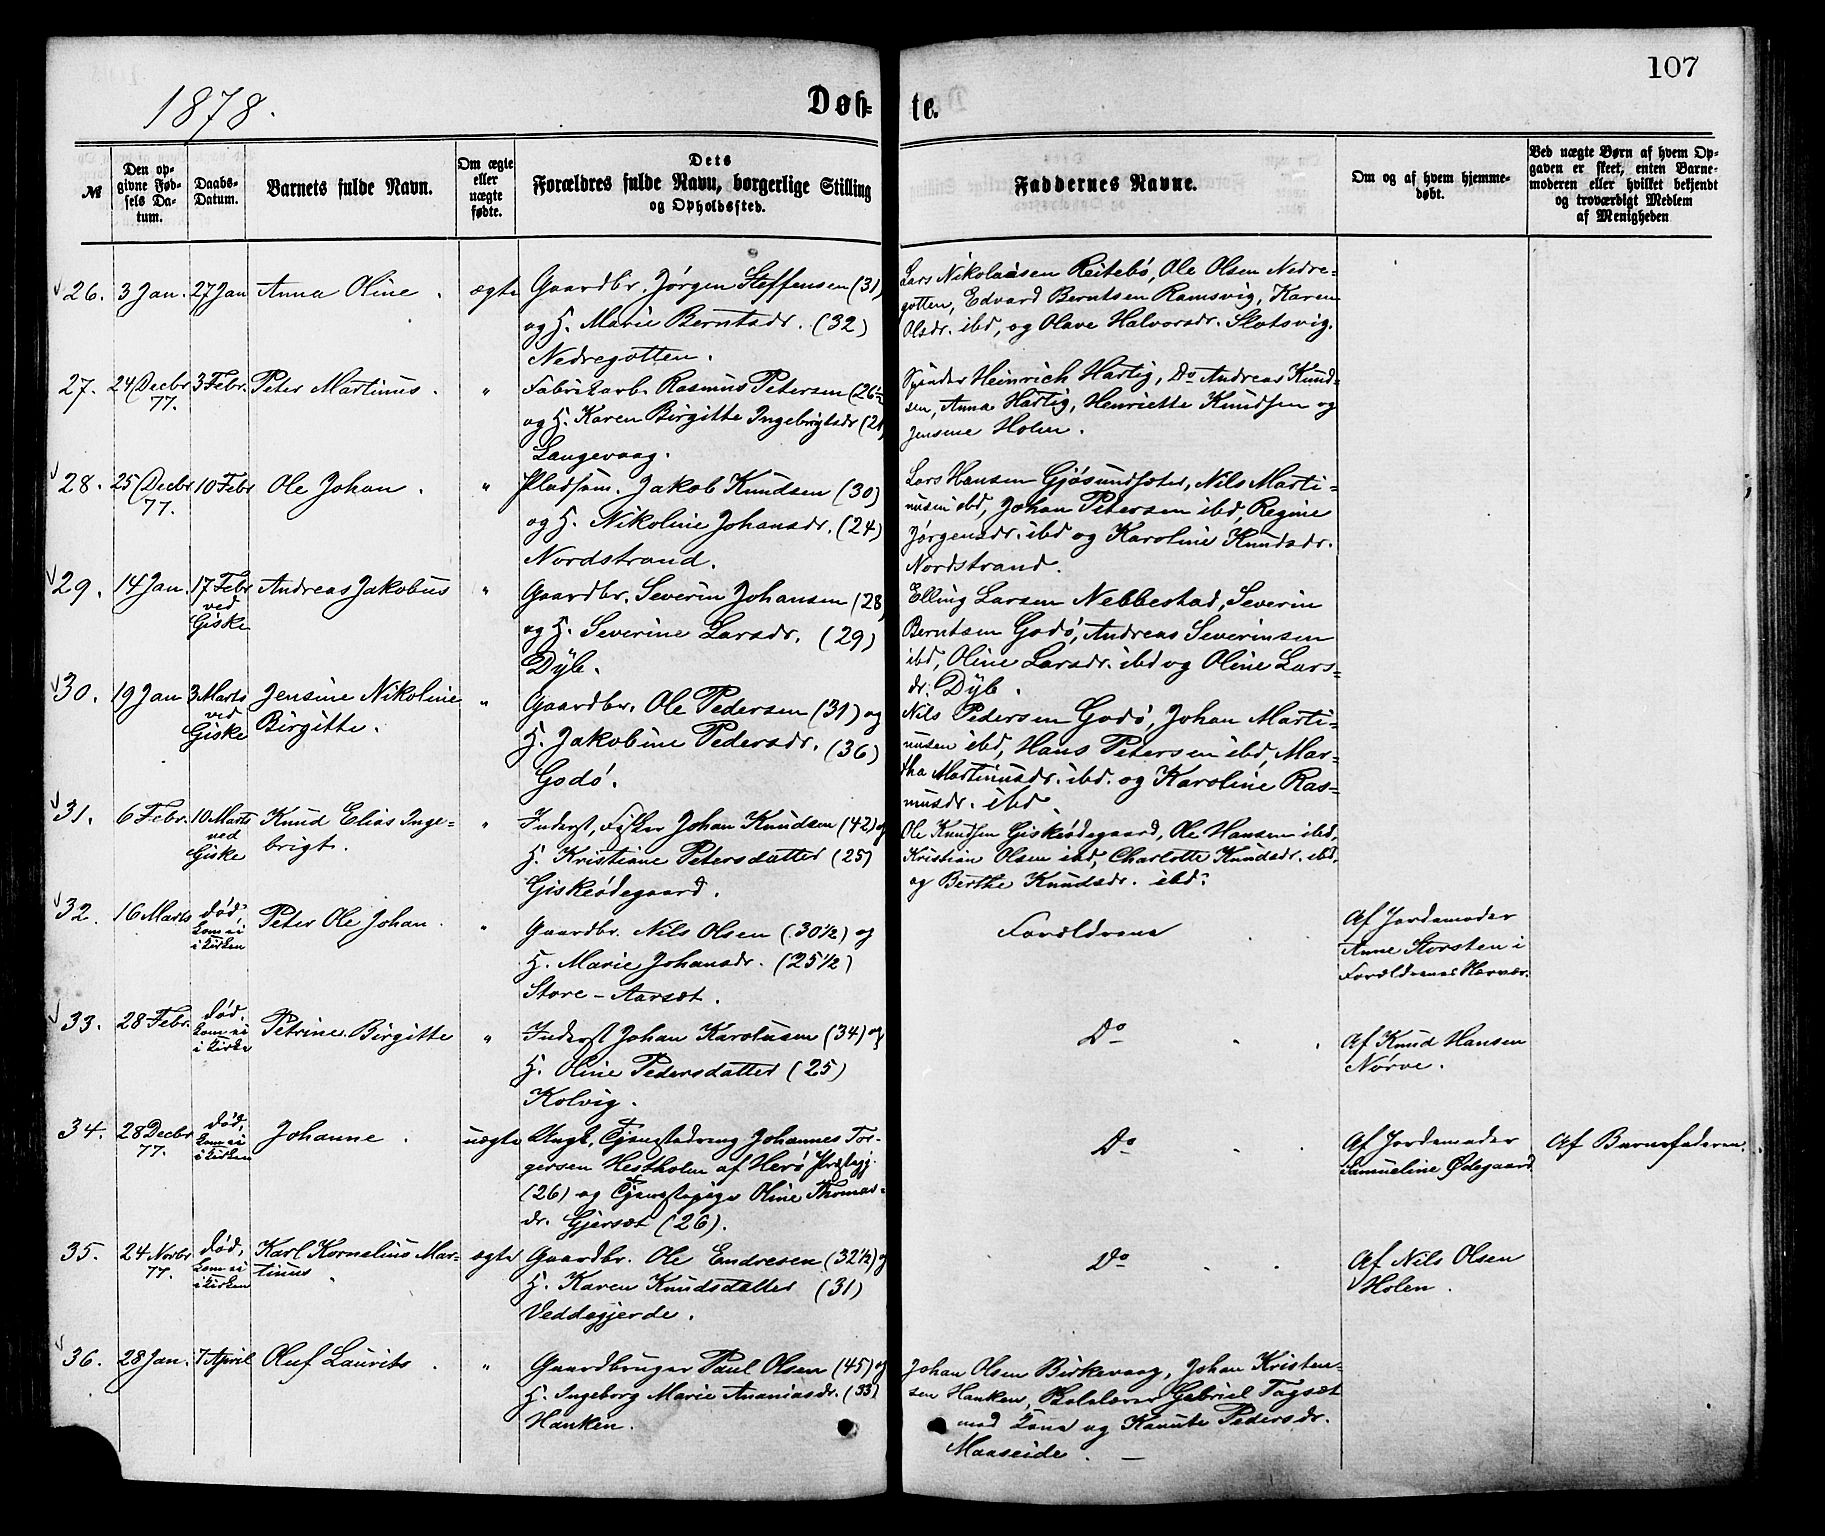 107
1878.
Døb- te.
№
Den opgivne Fødsels Datum.
Daabs-Datum.
Barnets fulde Navn.
Om ægte eller uægte fødte.
Dets Forældres fulde Navn, borgerlige Stilling og Opholdssted.
Faddernes Navne.
Om og af hvem hjemmedøbt.
Ved uægte Børn af hvem Opgaven er skeet, enten Barnemoderen eller hvilket bekjendt og troværdigt Medlem af Menigheden
26. 3 Jan. 27 Jan Anna Oline. ægte Gaardbr. Jørgen Steffensen (31)
og H. Marie Berntsdr. (32)
Nedregotten.
Lars Nikolaisen Reitebø, Ole Olsen Nedre-
gotten, Edvard Berntsen Ramsvig, Karen
Olsdr. ibd, og Olave Halvorsdr. Slotsvig.
27. 24 Decbr 77. 3 Febr. Peter Martinus. " Fabrikarb. Rasmus Petersen (26½
og H. Karen Birgitte Ingebrigtsdr (21)
Langevaag.
Spinder Heinrich Hartig, Do Andreas Knud-
sen, Anna Hartig, Henriette Knudsen og
Jensine Holen.
28. 25 Decbr 77. 10 Febr Ole Johan. " Pladsm. Jakob Knudsen (30)
og H. Nikoline Johansdr. (24)
Nordstrand.
Lars Hansen Gjøsundsæter, Nils Marti-
nusen ibd, Johan Petersen ibd, Regine
Jørgensdr. ibd og Karoline Knudsdr.
Nordstrand.
29. 14 Jan. 17 Febr ved Giske Andreas Jakobus " Gaardbr. Severin Johansen (28)
og H. Severine Larsdr. (29)
Dyb.
Elling Larsen Nebbestad, Severin
Berntsen Godø, Andreas Severinsen
ibd, Oline Larsdr. ibd og Oline Lars-
dr. Dyb.
30. 19 Jan 3 Marts ved Giske Jensine Nikoline
Birgitte. " Gaardbr. Ole Pedersen (31) og
H. Jakobine Pedersdr. (36)
Godø.
Nils Pedersen Godø, Johan Marti-
nusen ibd, Hans Petersen ibd, Mar-
tha Martinusdr. ibd. og Karoline Ras-
musdr. ibd.
31. 6 Febr. 10 Marts ved Giske Knud Elias Inge-
brigt. " Inderst, Fisker Johan Knudsen (42) og
H. Kristiane Petersdatter (25)
Giskeødegaard.
Ole Knudsen Giskeødegaard, Ole Hansen ibd,
Kristian Olsen ibd, Charlotte Knudsdr. ibd,
og Berthe Knudsdr. ibd.
32. 16 Marts død, kom ei i kirken Peter Ole Johan. " Gaardbr. Nils Olsen (30½) og
H. Marie Johansdr. (25½)
Store-Aarsæt.
Forældrene
Af Jordemoder
Anne Storsten i
Forældrenes Nærvær.
33. 28 Febr. død, kom ei i kirke Petrine Birgitte " Inderst Johan Karolusen (34) og
H. Oline Pedersdatter (25)
Kolvig.
Do
Af Knud Hansen
Nørve.
34. 28 Decbr 77. død, kom ei i kirken Johanne. uægte Ungk. Tjenestedreng Johannes Tor-
gersen Hestholm af Herø Præstegj.
(26) og Tjenestepige Oline Thomas-
dr. Gjersæt (26).
Do
Af Jordemoder
Samueline Ødegaard
Af Barnefaderen.
35. 24 Novbr 77. død, kom ei i kirken Karl Kornelius Mar-
tinus ægte Gaardbr. Ole Endresen (32½) og
H. Karen Knudsdatter (31)
Veddegjerde.
Do
Af Nils Olsen
Holen.
36. 28 Jan. 7 April Oluf Laurits. " Gaardbruger Paul Olsen (45) og
H. Ingeborg Marie Ananiasdr. (33)
Hanken.
Johan Olsen Birkevaag, Johan Kristen-
sen Hanken, Gabriel Tagsæt
med Kone og Kanute Pedersdr.
Maaseide.